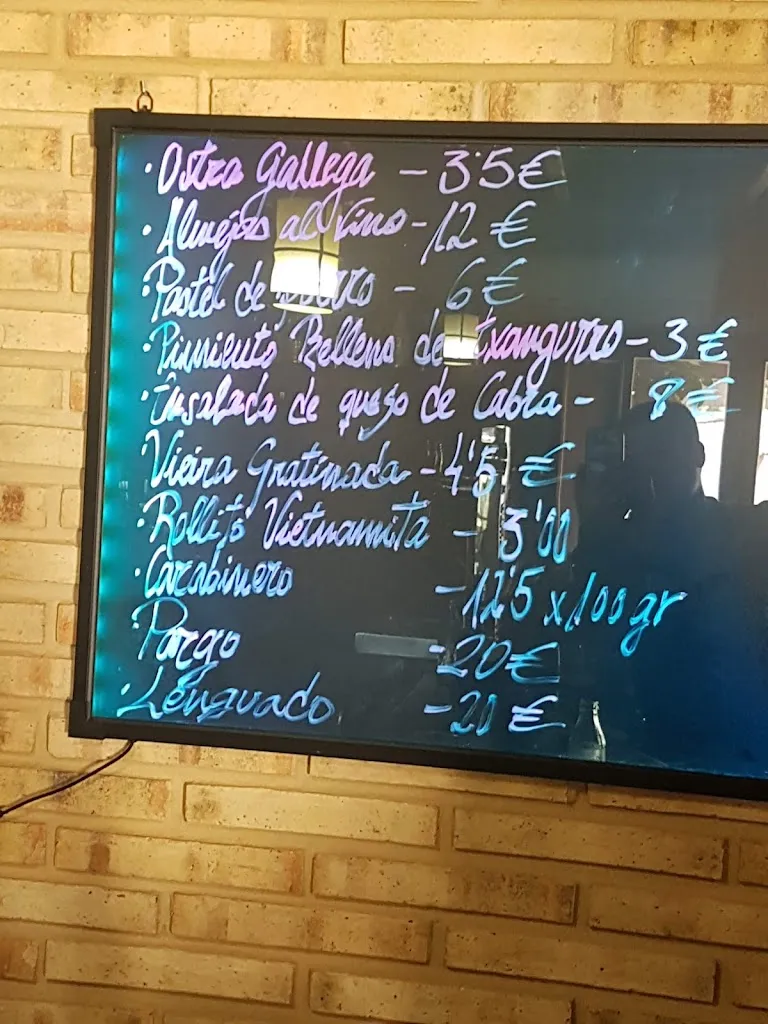 · Ostra Gallega - 3'5 €
· Almejas al vino - 12 €
· Pastel de puerro - 6 €
· Pimiento Relleno de txangurro - 3 €
· Ensalada de queso de Cabra - 8 €
Vieira Gratinada - 4'5 €
· Rollito Vietnamita - 3'00
· Carabinero - 12'5 x 100 gr
· Pargo - 20 €
· Lenguado - 20 €